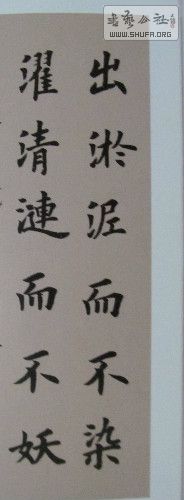 书艺公社
WWW.SHUFA.ORG
出淤泥而不染
濯清漣而不妖